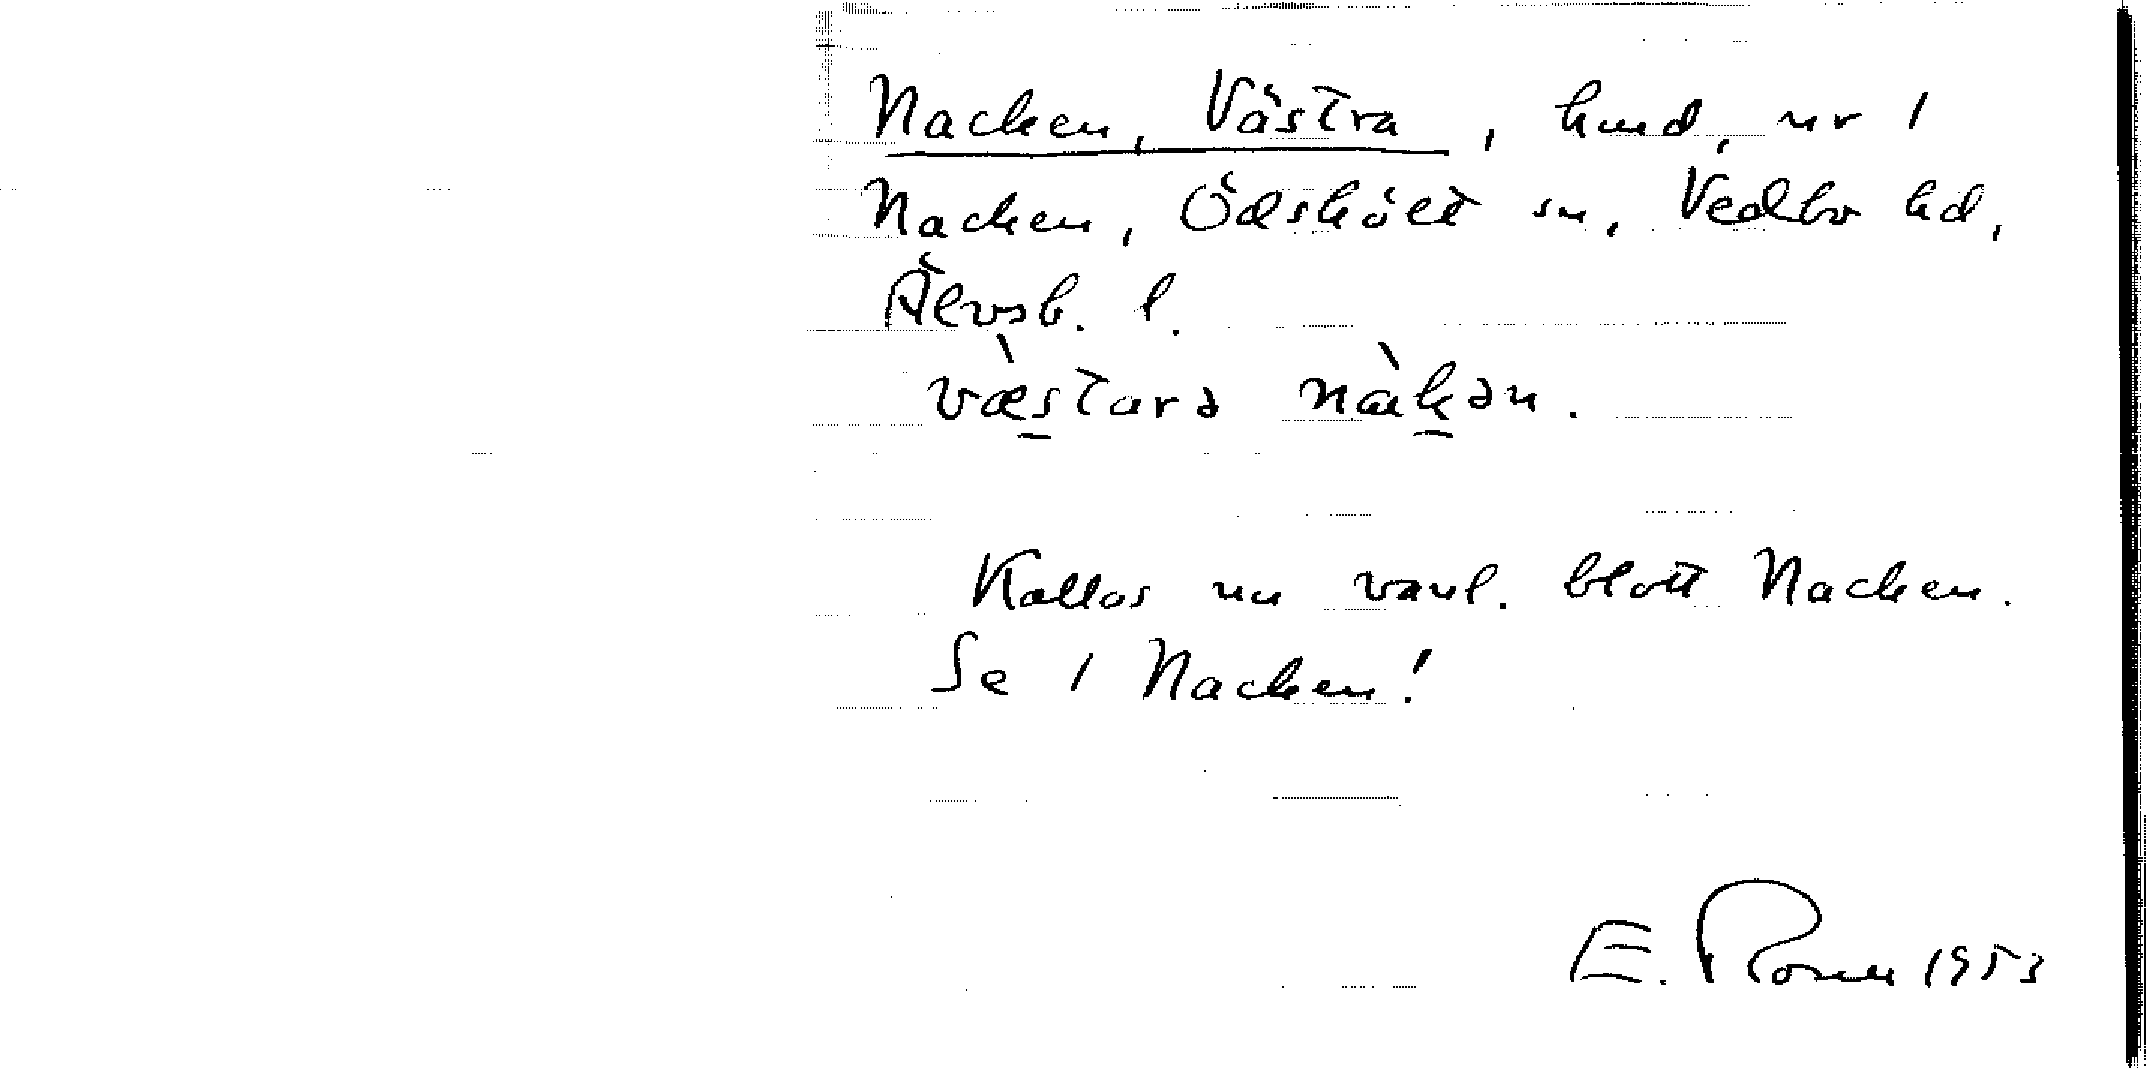 Nacken, Västra, hmd, nr 1
Nacken, Ödskölt sn, Vedbo hd,
Älvsb. l.
væ̀starə nàkən.
Kallas nu vanl. blott Nacken.
Se 1 Nacken!
E. Rosell 1953